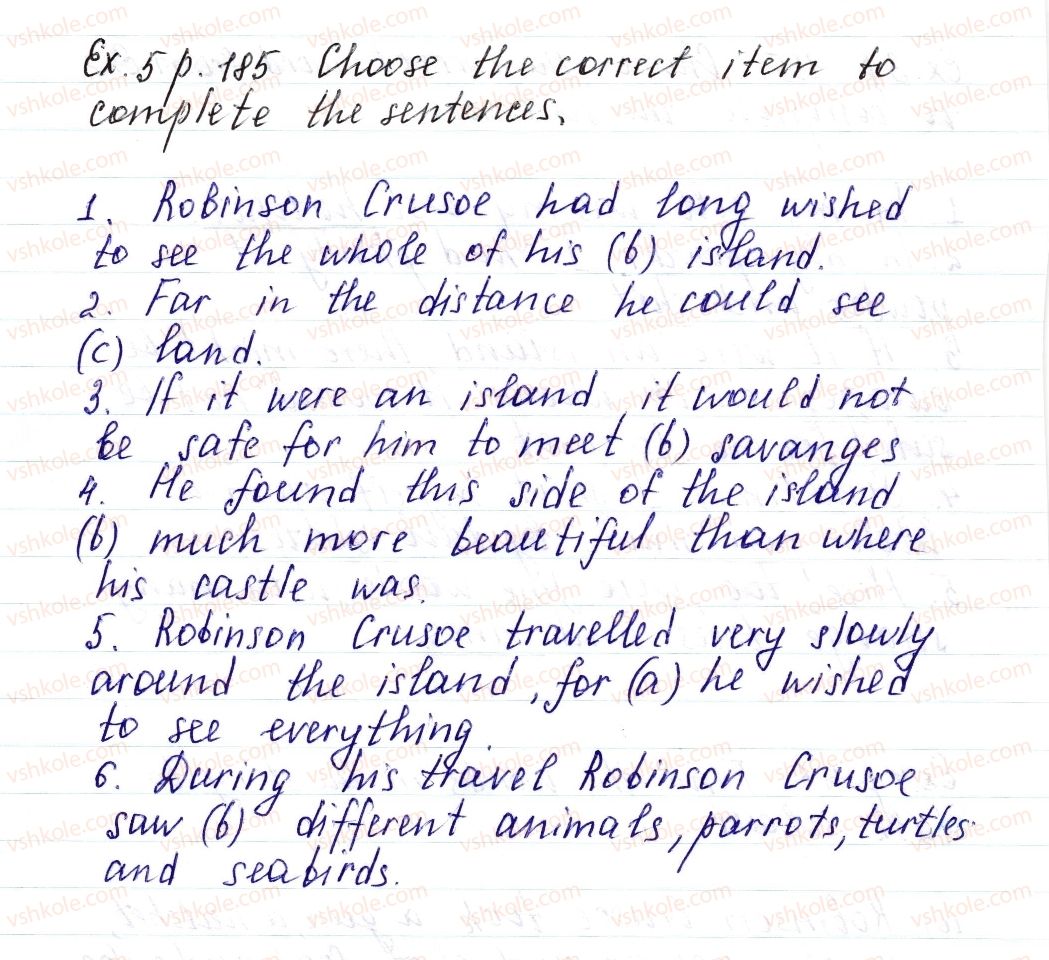 Ex. 5 p. 185 Choose the correct item to
complete the sentences.
1. Robinson Crusoe had long wished
to see the whole of his (b) island.
2. Far in the distance he could see
(c) land.
3. If it were an island, it would not
be safe for him to meet (b) savanges
4. He found this side of the island
(b) much more beautiful than where
his castle was.
5. Robinson Crusoe travelled very slowly
around the island, for (a) he wished
to see everything.
6. During his travel Robinson Crusoe
saw (b) different animals, parrots, turtles
and seabirds.